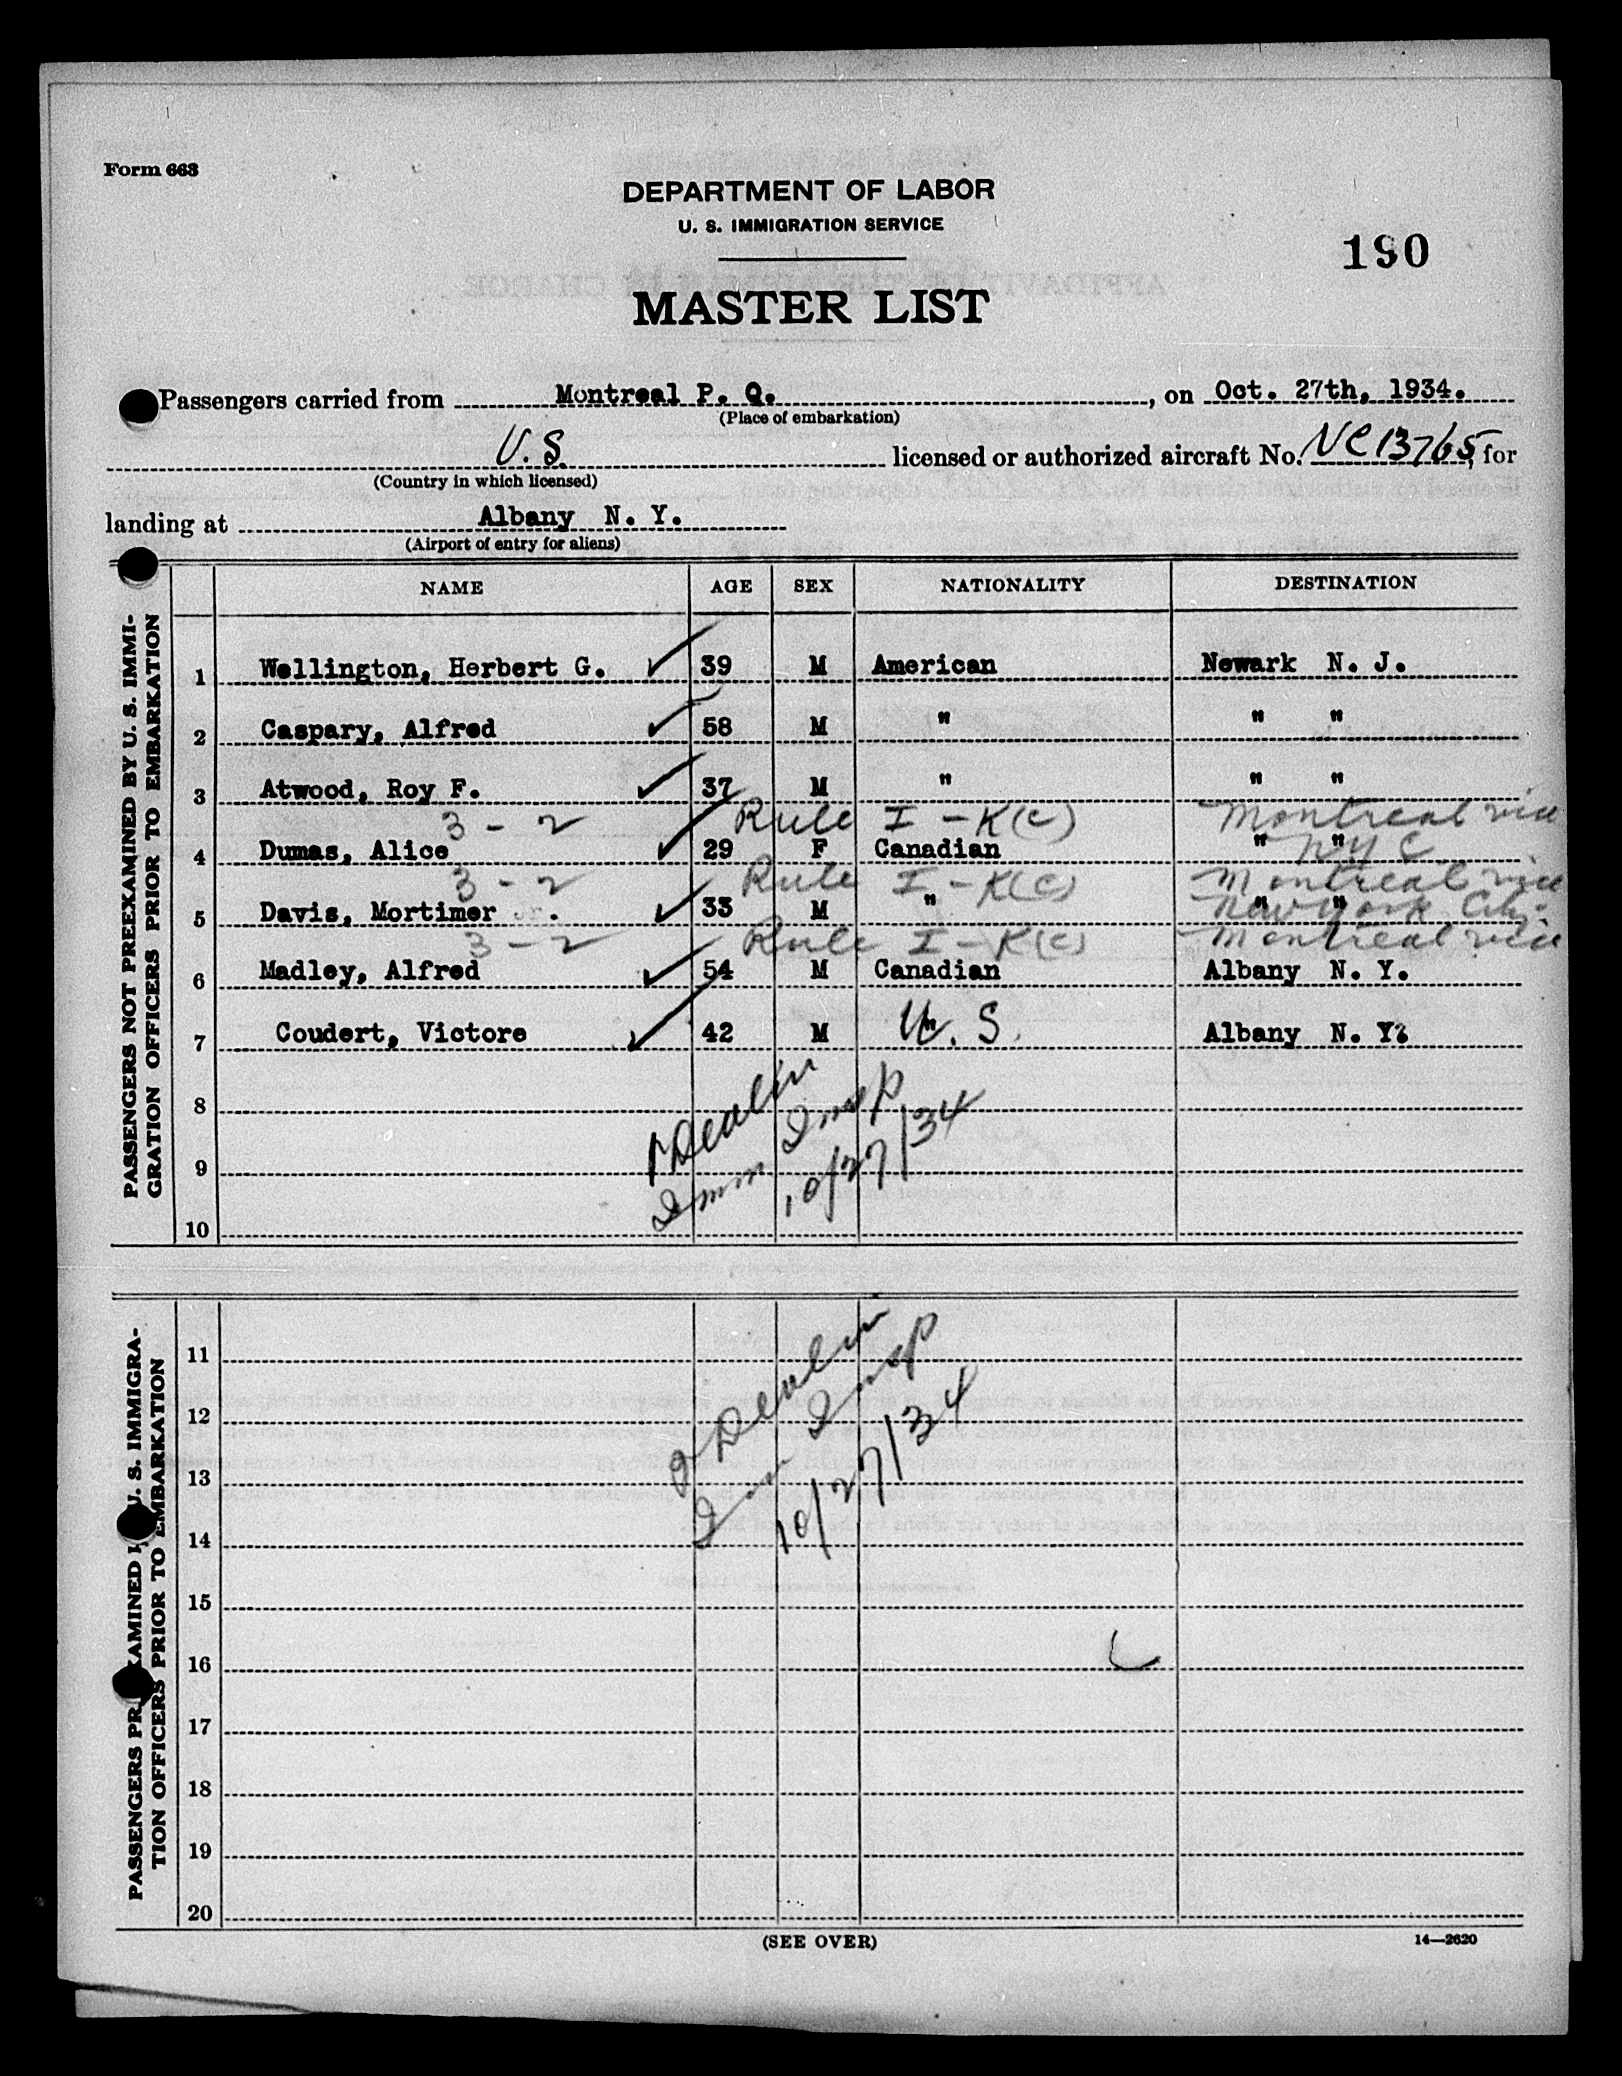 Form 663
DEPARTMENT OF LABOR
U. S. IMMIGRATION SERVICE
190
MASTER LIST
Passengers carried from Montreal P. Q., on Oct. 27th, 1934.
(Place of embarkation)
U. S. licensed or authorized aircraft No. NC13765, for
(Country in which licensed)
landing at Albany N. Y.
(Airport of entry for aliens)
NAME AGE SEX NATIONALITY DESTINATION
PASSENGERS NOT PREEXAMINED BY U. S. IMMI-
GRATION OFFICERS PRIOR TO EMBARKATION
1 Wellington, Herbert G. 39 M American Newark N. J.
2 Caspary, Alfred 58 M " " "
3 Atwood, Roy F. 37 M " " "
3-2 Rule I-K(c) Montreal via
4 Dumas, Alice 29 F Canadian " " NYC
3-2 Rule I-K(c) Montreal via
5 Davis, Mortimer Jr. 33 M " " " New York City
3-2 Rule I-K(c) Montreal via
6 Madley, Alfred 54 M Canadian Albany N. Y.
7 Coudert, Victore 42 M U. S. Albany N. Y.
8
9
10
Devlin
Imm Insp
10/27/34
PASSENGERS PREEXAMINED BY U. S. IMMIGRA-
TION OFFICERS PRIOR TO EMBARKATION
11
12
13
14
15
16
17
18
19
20
Devlin
Imm Insp
10/27/34
(SEE OVER)
14—2620